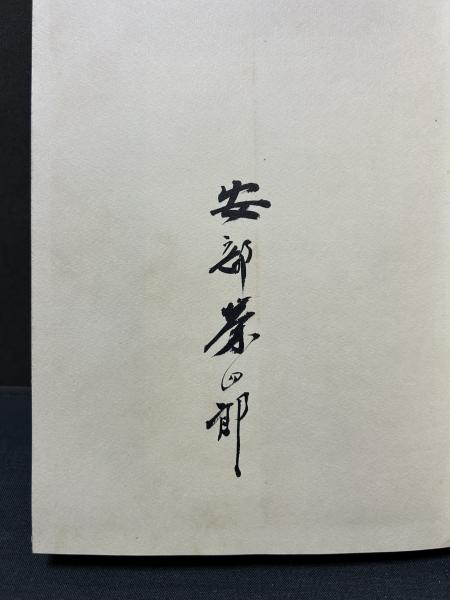 安部榮四郎